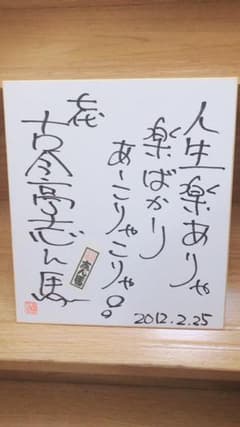 人生楽ありゃ
楽ばかり
あーこりゃこりゃ
六代
古今亭志ん馬
志ん馬
2012.2.25